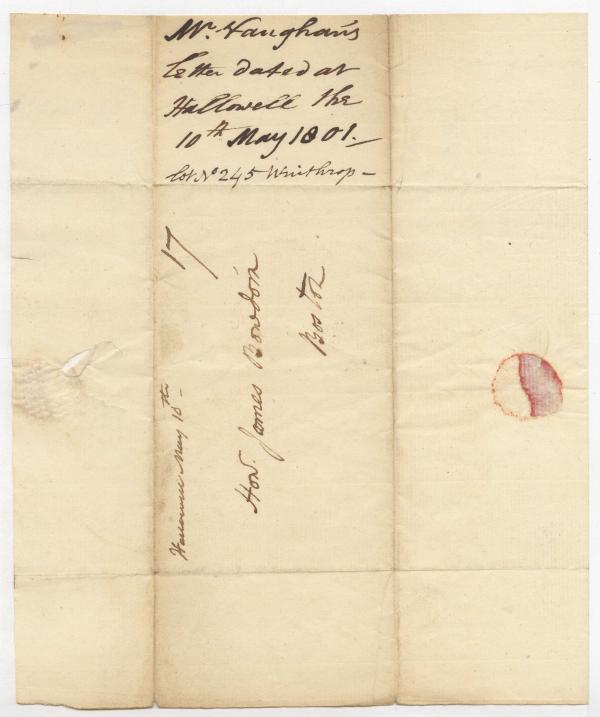 Mr. Vaughan's
letter dated at
Hallowell the
10th May 1801.—
lot No 245 Winthrop—
17
Honl. James Bowdoin
Boston
Hallowell May 10th—